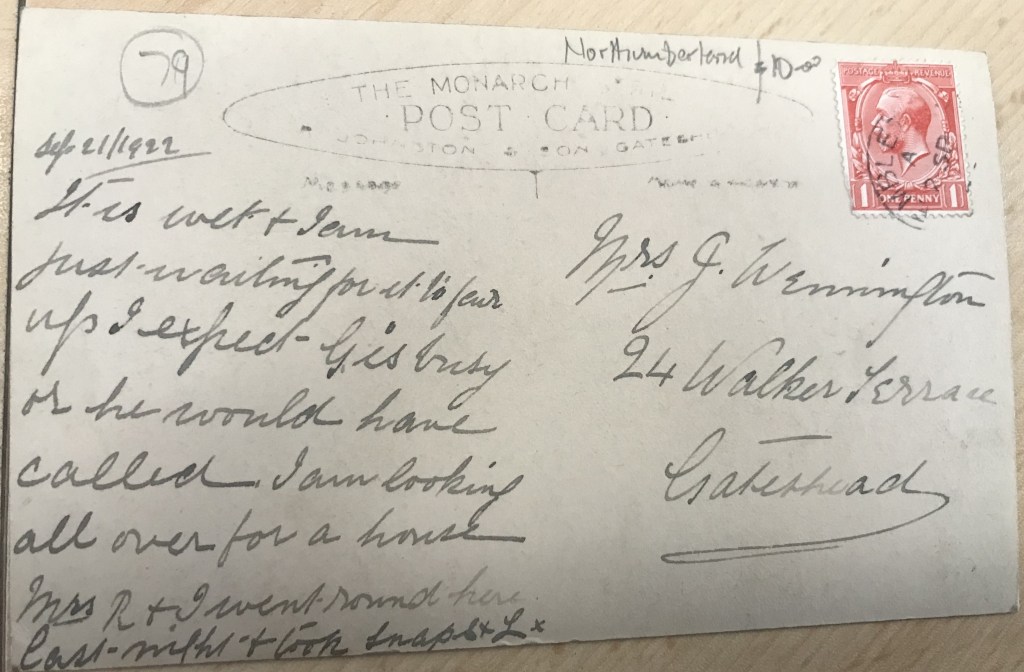 79
Northumberland £10-00
THE MONARCH
POST CARD
JOHNSTON & SON GATESH
POSTAGE REVENUE
1 ONE PENNY 1
Sep 21/1922
It is wet & I am
just waiting for it to fair
up I expect G is busy
or he would have
called I am looking
all over for a house
Mrs R & I went round here
last night & took snaps
Mrs. J. Wennington
24 Walker Terrace
Gateshead